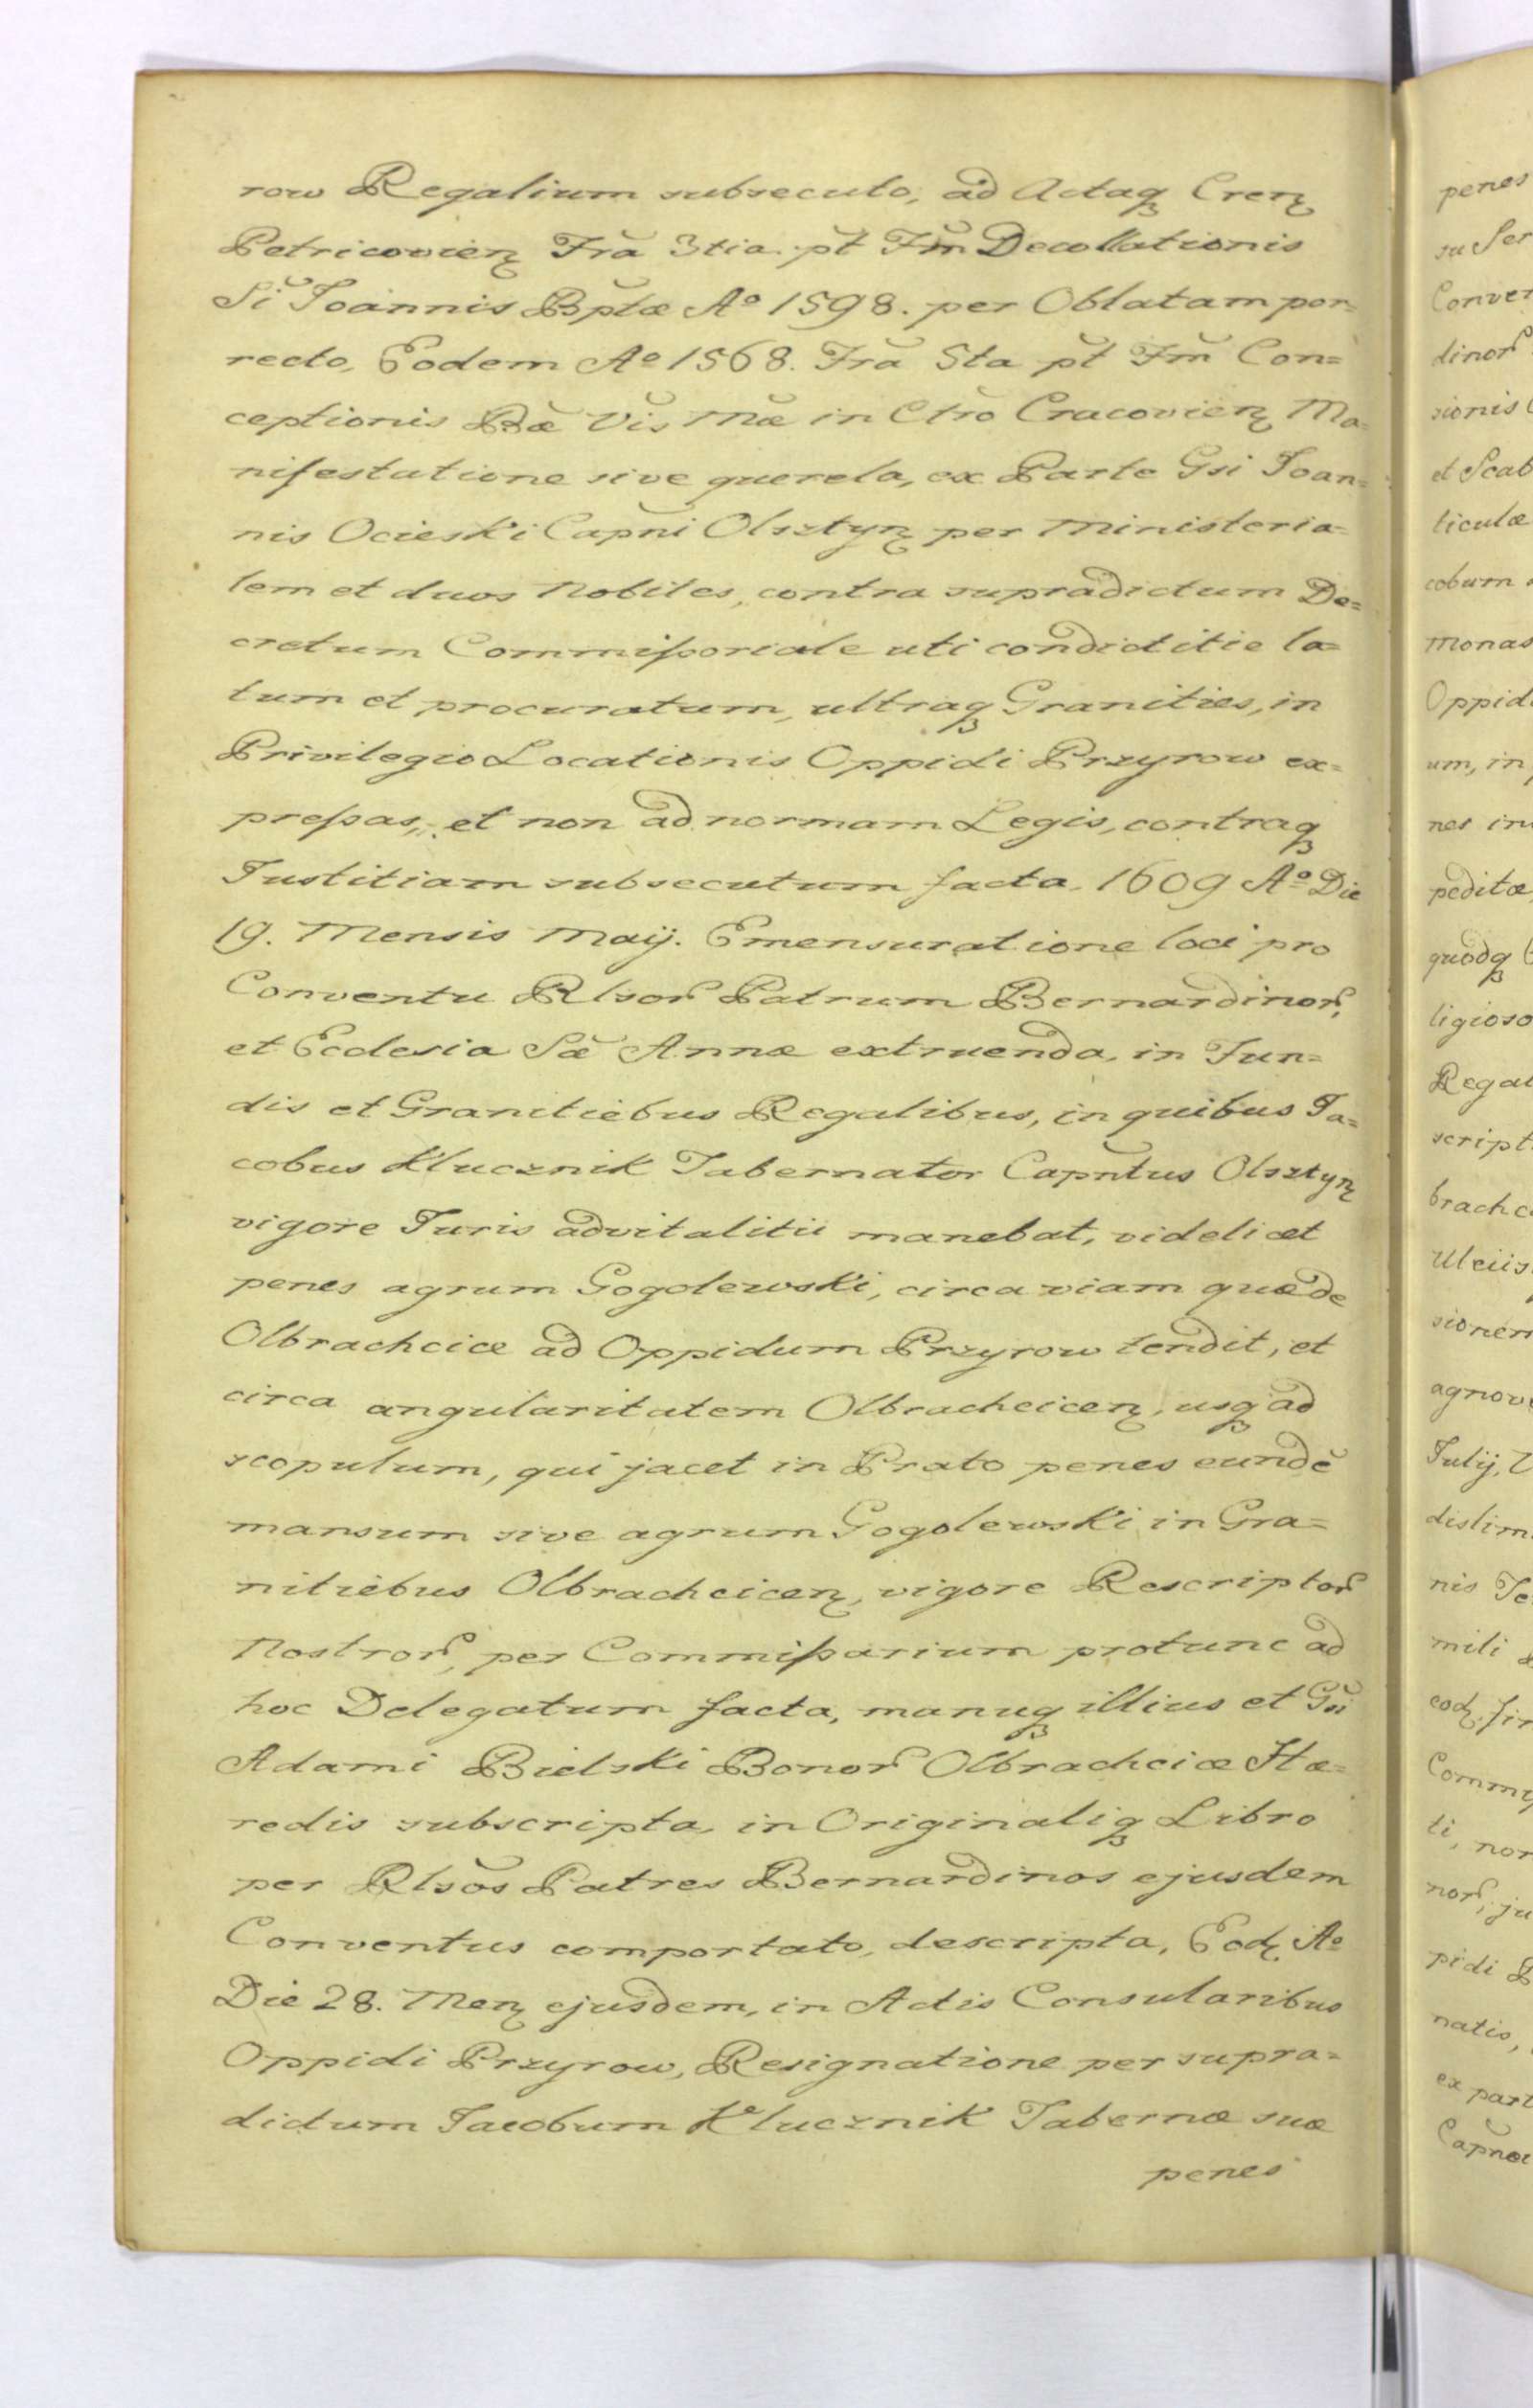 row Regalium subsecuto, ad Actaqꝫ Cren̄
Petricovien̄ Fr̃a 3tia pt̃ Fm̃ Decollationis
Si̇̃ Joannis Bptæ Aº 1598. per Oblatam por=
recto, Eodem Aº 1568. Fr̃a 5ta pt̃ Fm̃ Con=
ceptionis Bæ̃ Vis̃ Mæ in Ctr̃o Cracovien̄ Ma=
nifestatione sive querela, ex Parte Gsi Joan=
nis Ocieski Capni Olsztyn̄ per Ministeria=
lem et duos Nobiles, contra supradictum De=
cretum Commissoriale uti condictitie la=
tum et procuratum, ultraqꝫ Granities, in
Privilegio Locationis Oppidi Przyrow ex=
pressas, et non ad normam Legis, contraqꝫ
Justitiam subsecutum facta, 1609 Aº Die
19. Mensis Maij. Emensuratione loci pro
Conventu Rlsoꝝ Patrum Bernardinoꝝ,
et Ecclesia Sæ̃ Annæ extruenda, in Fun=
dis et Granitiebus Regalibus, in quibus Ja=
cobus Klucznik Tabernator Capñtus Olsztyn̄
vigore Juris advitalitii manebat, videlicet
penes agrum Gogolewski, circa viam quæ de
Olbrachcice ad Oppidum Przyrow tendit, et
circa angularitatem Olbrachcicen̄, usqꝫ ad
scopulum, qui jacet in Prato penes eundẽ
mansum sive agrum Gogolewski in Gra=
nitiebus Olbrachcicen̄, vigore Rescriptoꝝ
Nostroꝝ, per Commissarium protunc ad
hoc Delegatum facta, manuqꝫ illius et Gsĩ
Adami Bielski Bonoꝝ Olbrachcice Hæ=
redis subscripta, in Originaliqꝫ Libro
per Rlsõs Patres Bernardinos ejusdem
Conventus comportato, descripta, Eod. Aº
Die 28. Men̄ ejusdem, in Actis Consularibus
Oppidi Przyrow, Resignatione per supra=
dictum Jacobum Klucznik Tabernæ suæ
penes
penes
Conver
dinoꝝ
sionis
et Scab
ticulæ
cobum
Monas
Oppid
um, in
nes in
peditæ
quodqꝫ
ligioso
Regal
script
brachc
sionem
agnov
Julij,
dislim
nis Te
mili
eod. fir
ti, nor
noꝝ, ju
pidi
natis,
ex part